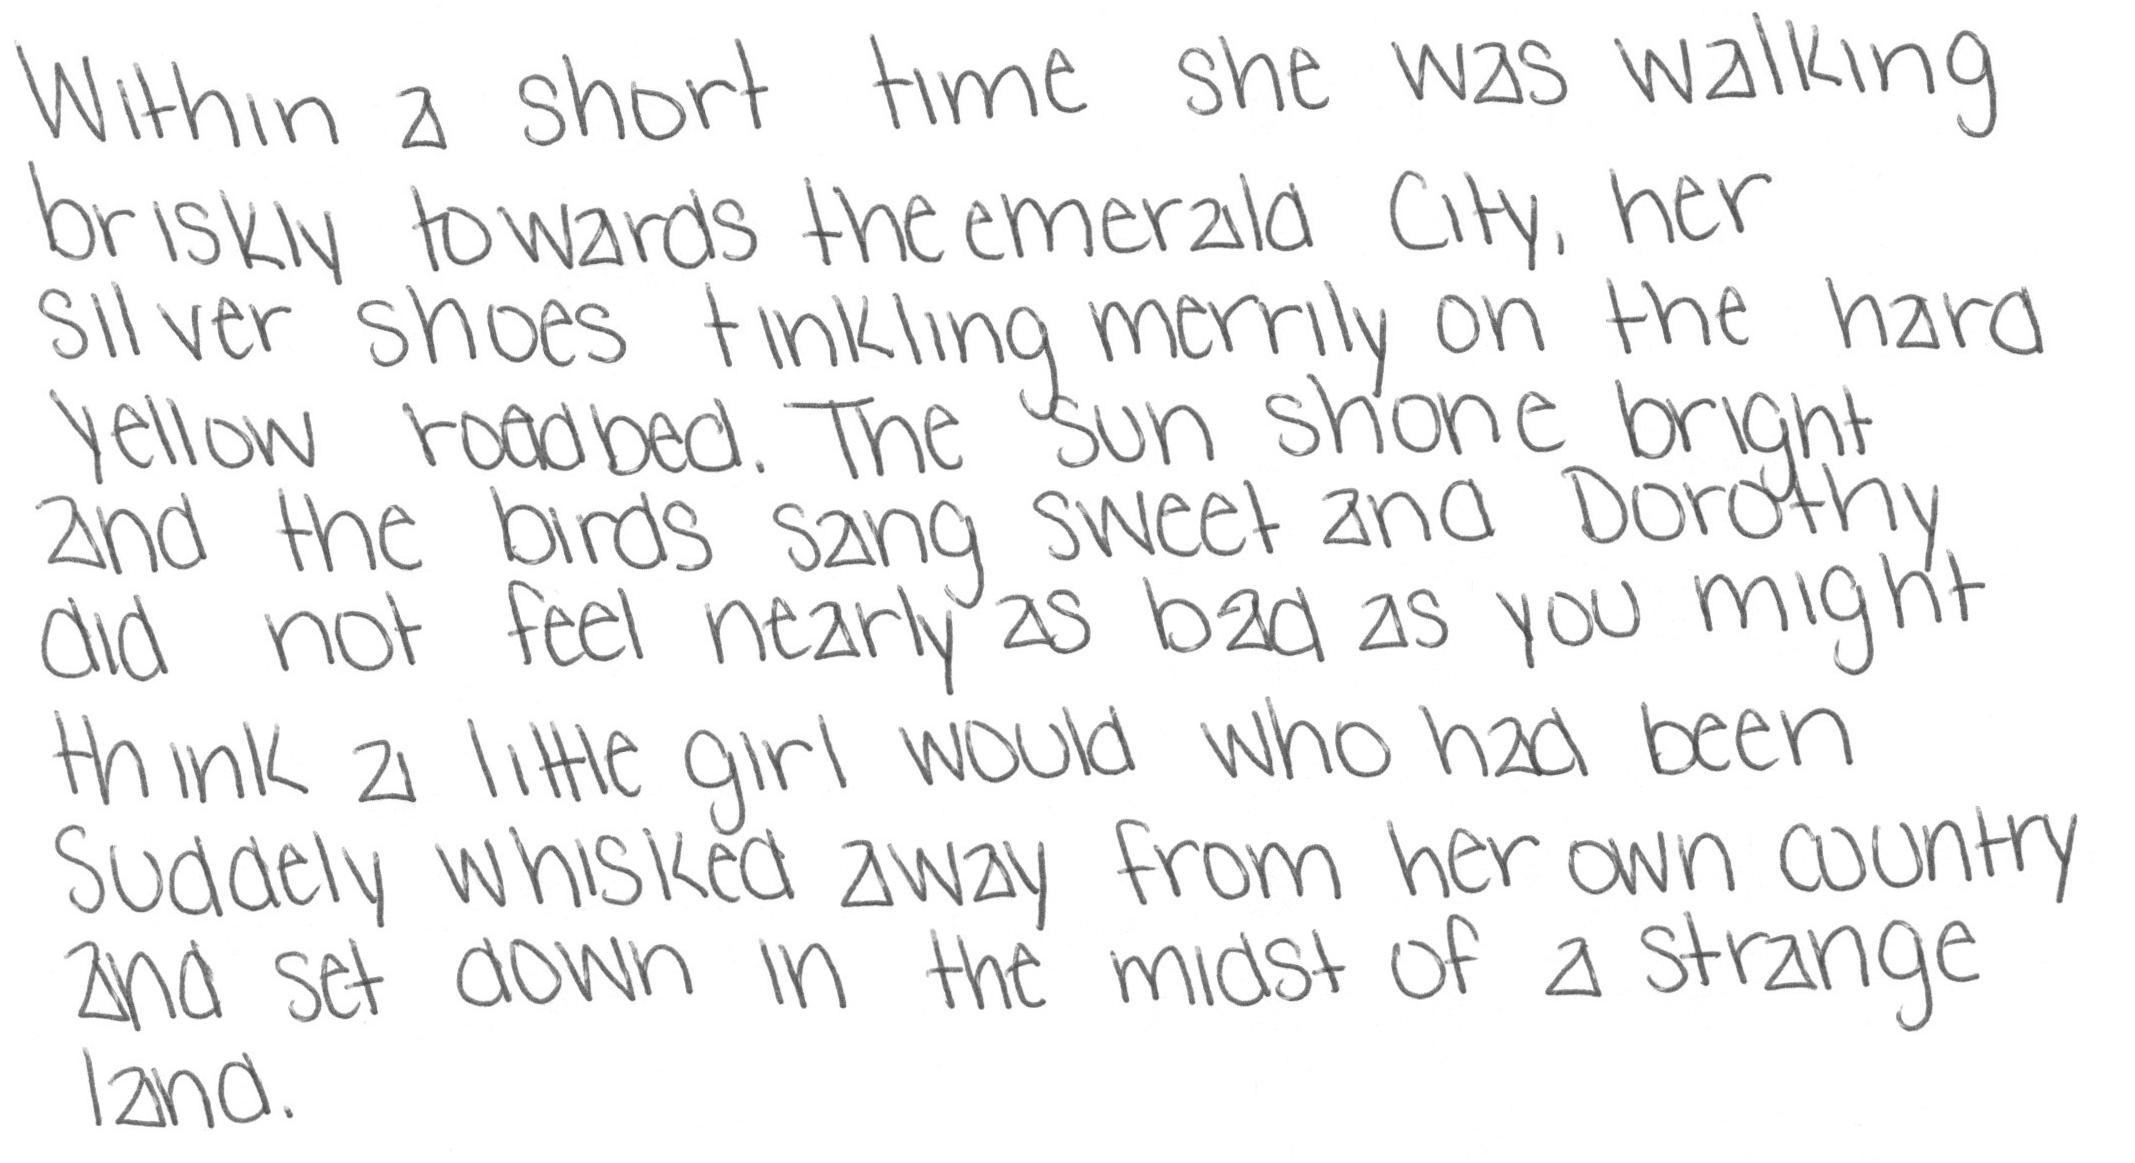 Within a short time she was walking
briskly towards the emerald City, her
silver shoes tinkling merrily on the hard
yellow roadbed. The sun shone bright
and the birds sang sweet and Dorothy
did not feel nearly as bad as you might
think a little girl would who had been
suddely whisked away from her own country
and set down in the midst of a strange
land.